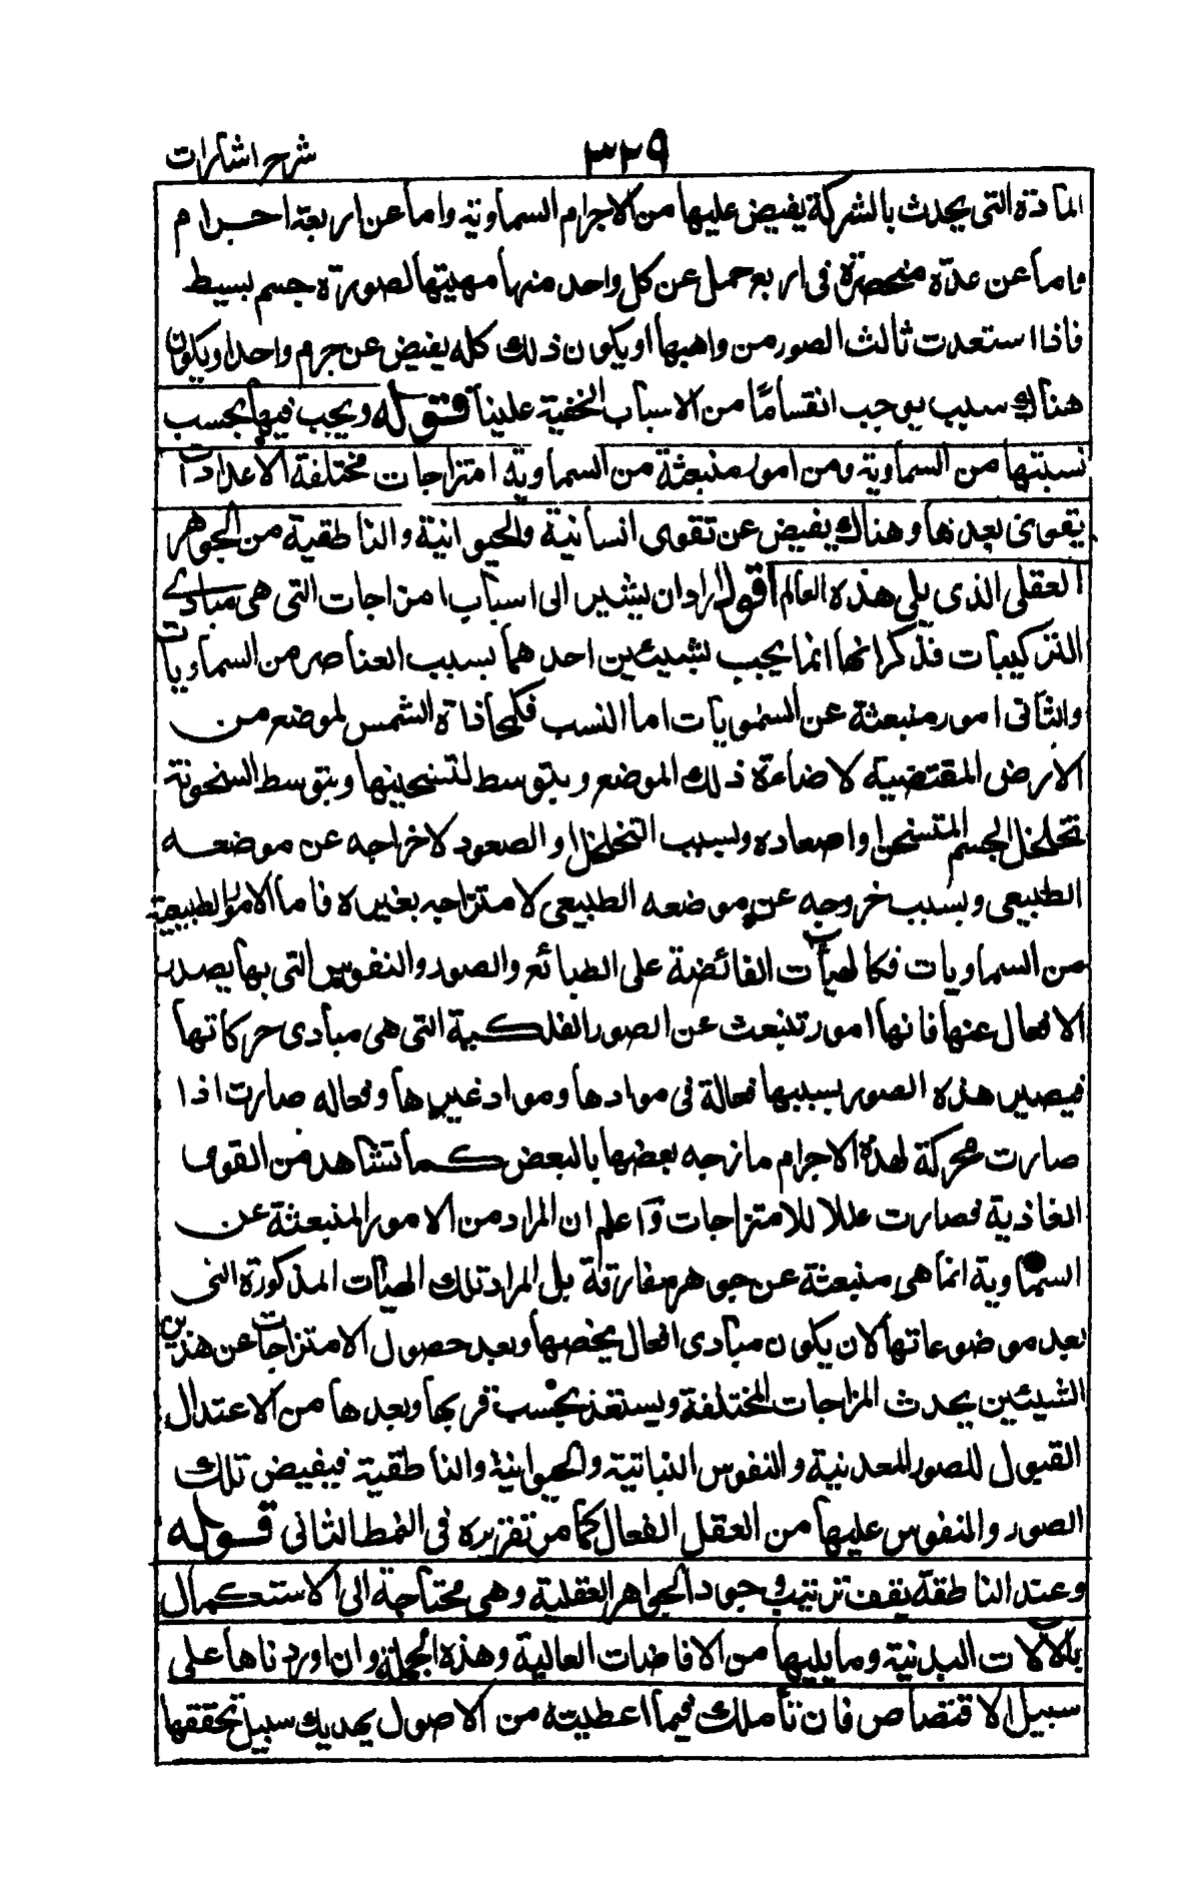 شرح اشارات
٣٢٩
المادة التى يحدث بالشركة يفيض عليها من الاجرام السماوية واما عن اربعة اجرام
واما عن عدة منحصرة فى اربع حمل عن كل واحد منها مهيتها لصورة جسم بسيط
فاذا استعدت ثالث الصور من واهبها او يكون ذلك كله يفيض عن جرم واحد او يكون
هناك سبب يوجب انقساما من الاسباب الخفية علينا قوله ويجب فيها بحسب
نسبتها من السماوية ومن امور منبعثة من السماوية امتزاجات مختلفة الاعدادات
يقوى بعدها وهناك يفيض عن تقوى انسانية والحيوانية والناطقية من الجوهر
العقلى الذى يلى هذه العالم اقول اراد ان يشير الى اسباب امزاجات التى هى مبادى
التركيبات فذكر انها انما يجب بشيئين احدهما بسبب العناصر من السماويات
والثانى امور منبعثة عن السمويات اما النسب فكمحاذاة الشمس لموضع من
الارض المقتضية لاضاءة ذلك الموضع وبتوسط لتسخينها وبتوسط السخونة
تخلخل الجسم المتسخن او اصعاده وبسبب التخلخل او الصعود لاخراجه عن موضعه
الطبيعى وبسبب خروجه عن موضعه الطبيعى لامتزاجه بغيره فاما الامور الطبيعية
من السماويات فكالهيأت الفائضة على الطبائع والصور والنفوس التى بها يصدر
الافعال عنها فانها امور تنبعث عن الصور الفلكية التى هى مبادى حركاتها
فيصير هذه الصور بسببها فعالة فى موادها ومواد غيرها وفعاله صارت اذا
صارت محركة لهذه الاجرام مازجه بعضها بالبعض كما تشاهد من القوى
الغاذية فصارت عللا للامتزاجات واعلم ان المراد من الامور المنبعثة عن
السماوية انما هى منبعثة عن جوهر مفارقة بل المراد تلك الهيأت المذكورة التى
بعد موضوعاتها لان يكون مبادى افعال يخصها وبعد حصول الامتزاجات عن هذين
الشيئين يحدث المزاجات المختلفة ويستعد بحسب قربها وبعدها من الاعتدال
القبول للصور المعدنية والنفوس النباتية والحيوانية والناطقية فيفيض تلك
الصور والنفوس عليها من العقل الفعال كما مر تقريره فى النمط الثانى قوله
وعند الناطقة يقف ترتيب وجود الجواهر العقلية وهى محتاجة الى الاستكمال
بالالات البدنية وما يليها من الافاضات العالية وهذه الجملة وان اوردناها على
سبيل الاقتصاص فان تأملك فيما اعطيته من الاصول يهديك سبيل تحققها